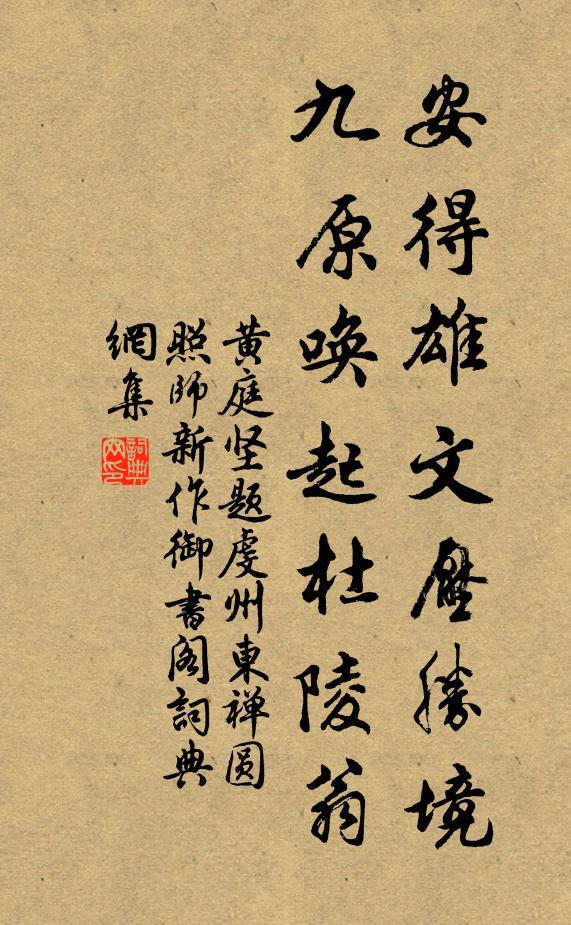 安得雄文壓勝境
九原喚起杜陵翁
黄庭坚題虔州東禅圆
照師新作御書阁詞典
網集
詞典網印